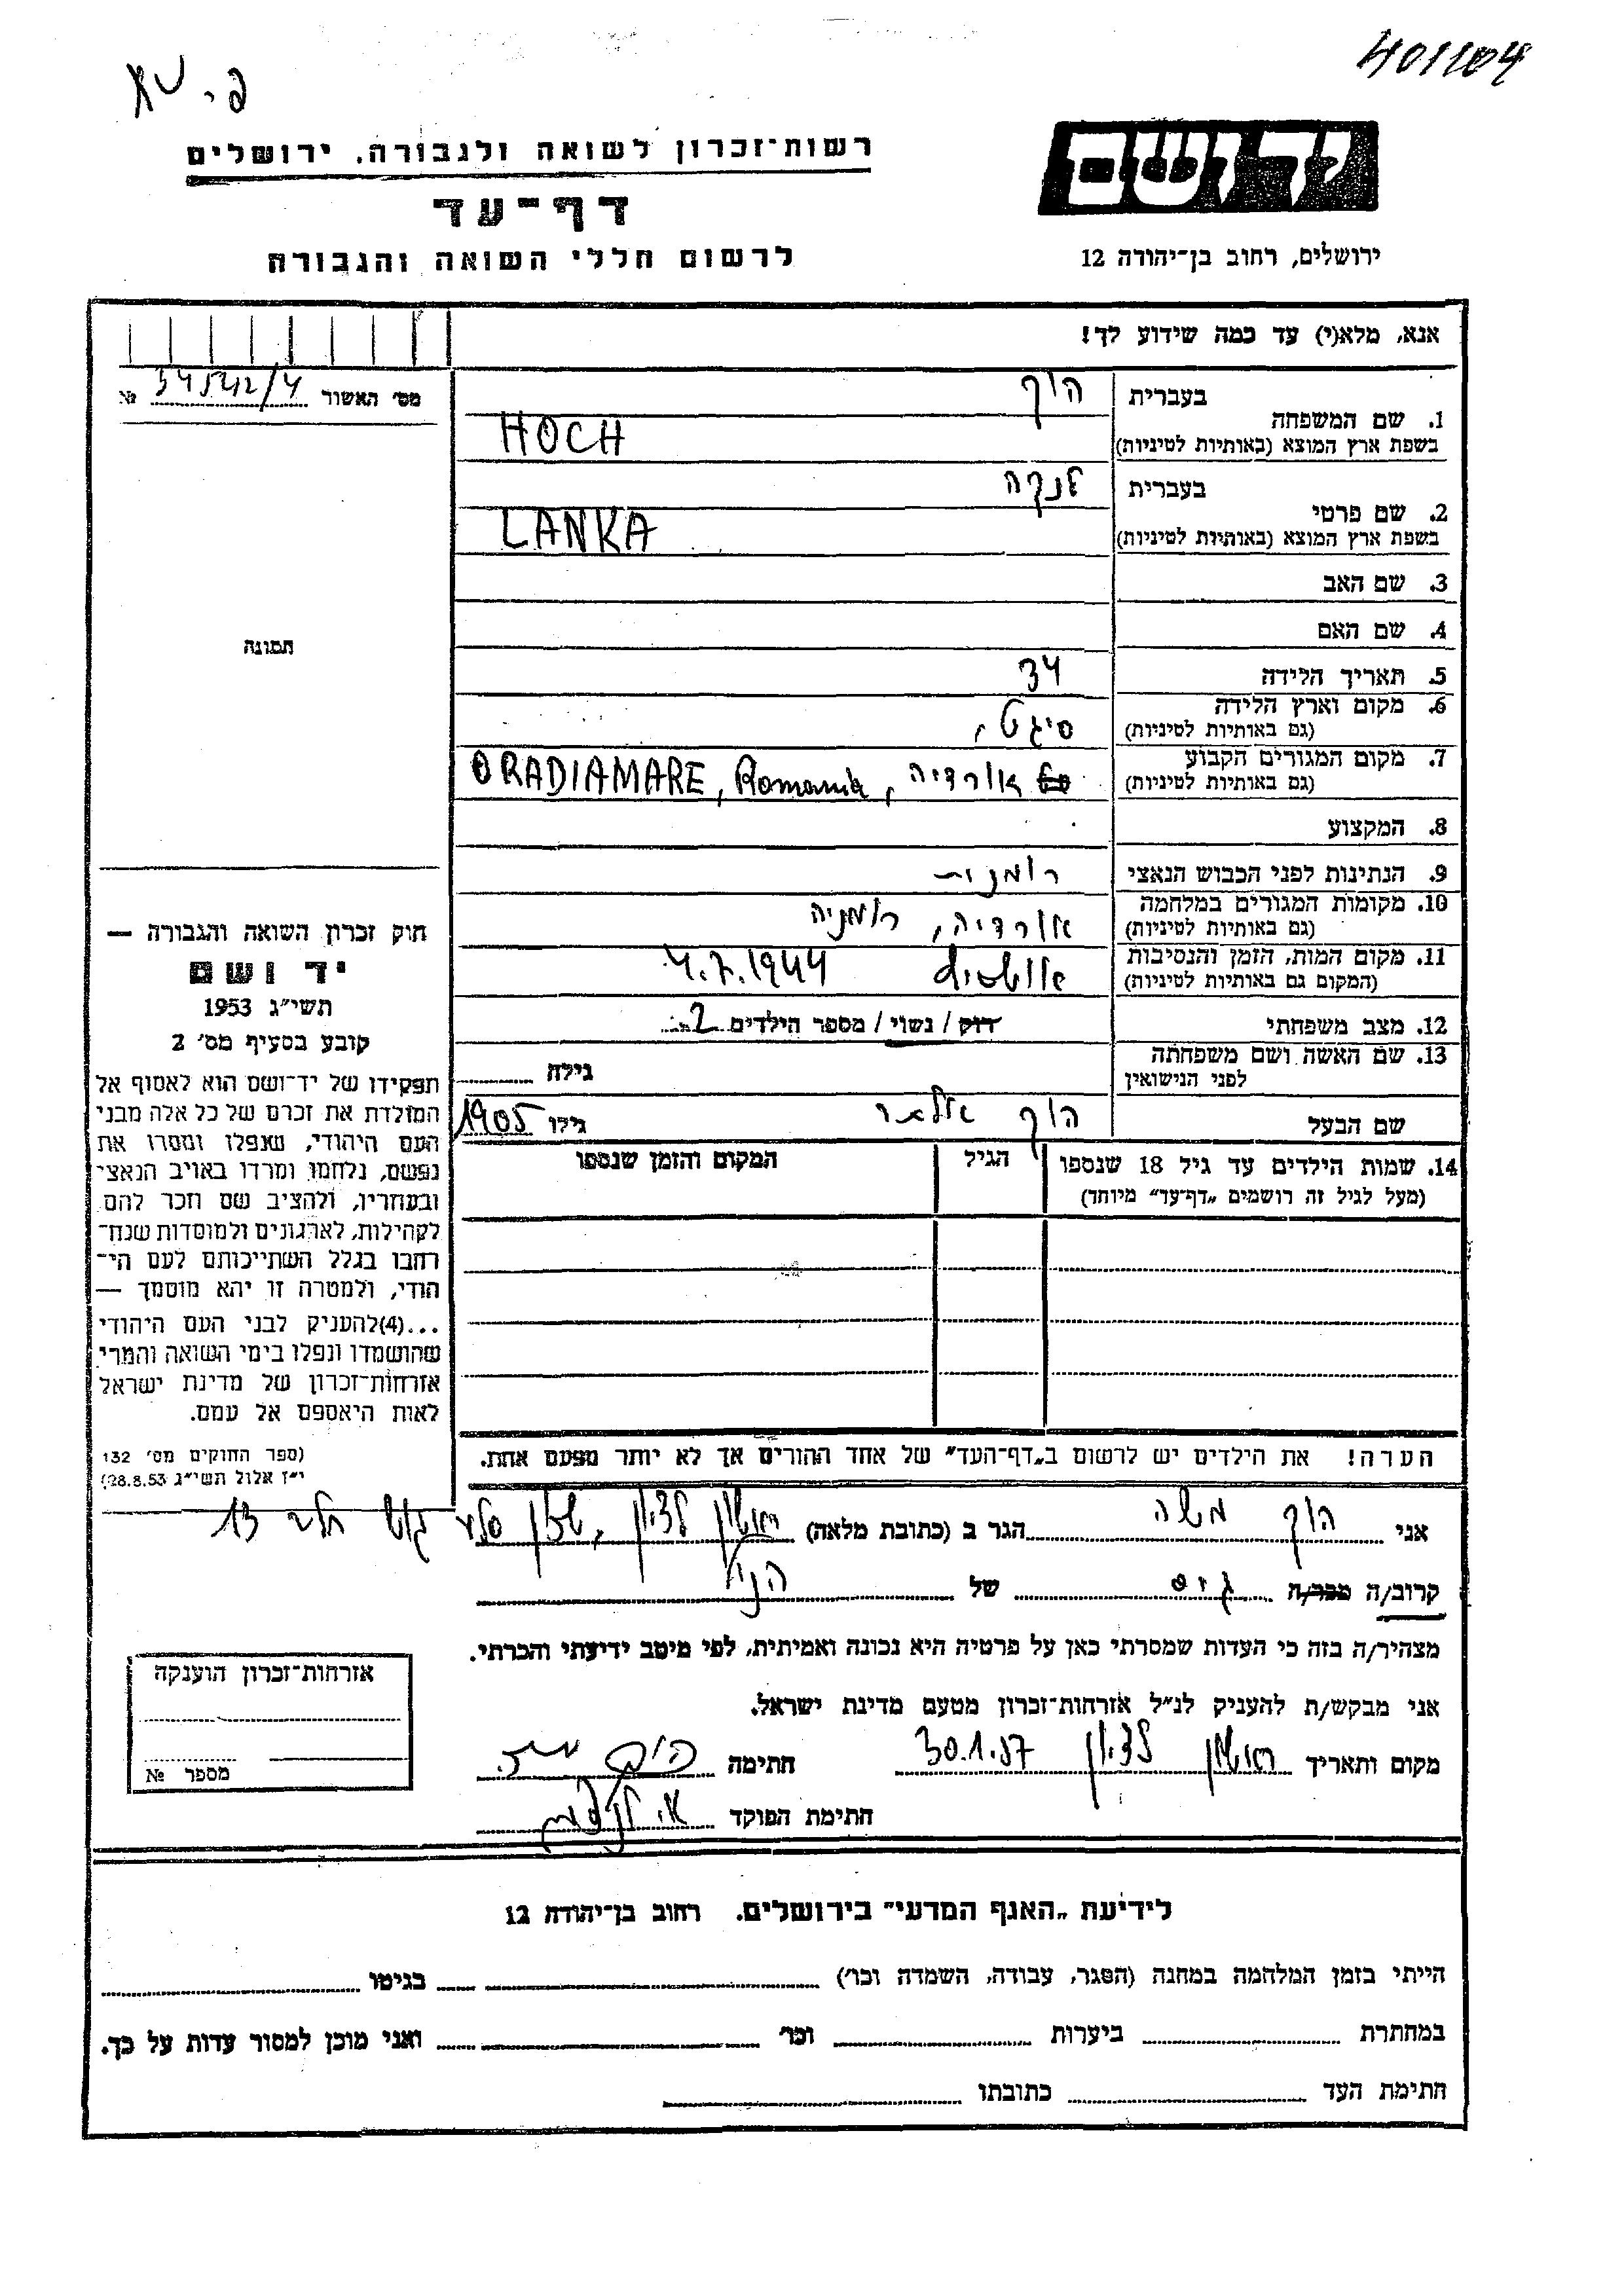 401104
פ.
רשות־זכרון לשואה ולגבורה, ירושלים
יד ושם
דף־עד
לרשום חללי השואה והגבורה
ירושלים, רחוב בן־יהודה 12
אנא, מלא(י) עד כמה שידוע לך!
מס׳ האשור 34542/4 №
תמונה
1. שם המשפחה
בעברית הוך
בשפת ארץ המוצא (באותיות לטיניות) HOCH
2. שם פרטי
בעברית לנקה
בשפת ארץ המוצא (באותיות לטיניות) LANKA
3. שם האב
4. שם האם
5. תאריך הלידה 34
6. מקום וארץ הלידה
(גם באותיות לטיניות) סיגט,
7. מקום המגורים הקבוע
(גם באותיות לטיניות) אורדיה, ORADIAMARE, Romania
8. המקצוע
9. הנתינות לפני הכבוש הנאצי רומנית
10. מקומות המגורים במלחמה
(גם באותיות לטיניות) אורדיה, רומניה
11. מקום המות, הזמן והנסיבות
(המקום גם באותיות לטיניות) אושויץ 4.7.1944
12. מצב משפחתי רוק / נשוי / מספר הילדים 2
13. שם האשה ושם משפחתה
לפני הנישואין גילה
שם הבעל הוך אלבר גילו 1905
14. שמות הילדים עד גיל 18 שנספו הגיל המקום והזמן שנספו
(מעל לגיל זה רושמים „דף־עד״ מיוחד)
הערה! את הילדים יש לרשום ב„דף־העד״ של אחד ההורים אך לא יותר מפעם אחת.
חוק זכרון השואה והגבורה —
יד ושם
תשי״ג 1953
קובע בסעיף מס׳ 2
תפקידו של יד־ושם הוא לאסוף אל
המולדת את זכרם של כל אלה מבני
העם היהודי, שנפלו ומסרו את
נפשם, נלחמו ומרדו באויב הנאצי
ובעוזריו, ולהציב שם וזכר להם
לקהילות, לארגונים ולמוסדות שנח־
רבו בגלל השתייכותם לעם הי־
הודי, ולמטרה זו יהא מוסמך —
...(4)להעניק לבני העם היהודי
שהושמדו ונפלו בימי השואה והמרי
אזרחות־זכרון של מדינת ישראל
לאות היאספם אל עמם.
(ספר החוקים מס׳ 132
י״ז אלול תשי״ג 28.8.53)
אני הוך משה הגר ב (כתובת מלאה) ראשון לציון, שכון 13
קרוב/ה מכר/ה גיס של הנ״ל
מצהיר/ה בזה כי העדות שמסרתי כאן על פרטיה היא נכונה ואמיתית, לפי מיטב ידיעתי והכרתי.
אני מבקש/ת להעניק לנ״ל אזרחות־זכרון מטעם מדינת ישראל.
מקום ותאריך ראשון לציון 30.1.57 חתימה הוך משה
חתימת הפוקד
אזרחות־זכרון הוענקה
מספר №
לידיעת „האגף המדעי״ בירושלים. רחוב בן־יהודה 12
הייתי בזמן המלחמה במחנה (הסגר, עבודה, השמדה וכו׳) בגיטו
במחתרת ביערות וכו׳ ואני מוכן למסור עדות על כך.
חתימת העד כתובתו